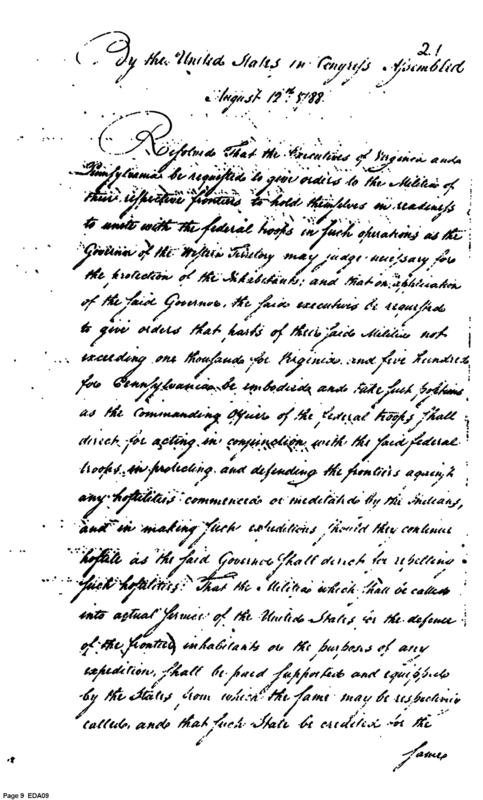 21
By the United States in Congress Assembled
August 12th 1788.
Resolved That the Executives of Virginia and
Pennsylvania be requested to give orders to the Militia of
their respective frontiers to hold themselves in readiness
to unite with the federal troops in such operations as the
Governor of the Western Territory may judge necessary for
the protection of the Inhabitants; and that on application
of the said Governor, the said executives be requested
to give orders that parts of their said Militia not
exceeding one thousand for Virginia and five hundred
for Pennsylvania be embodied and take such positions
as the Commanding Officer of the federal troops shall
direct for acting in conjunction with the said federal
troops in protecting and defending the frontiers against
any hostilities commenced or meditated by the Indians,
and in making such expeditions should they continue
hostile as the said Governor shall direct for repelling
such hostilities. That the Militia which shall be called
into actual service of the United States for the defence
of the frontier inhabitants or the purposes of any
expedition, shall be paid supported and equipped
by the States from which the same may be respectively
called, and that such State be credited for the
same
Page 9 EDA09